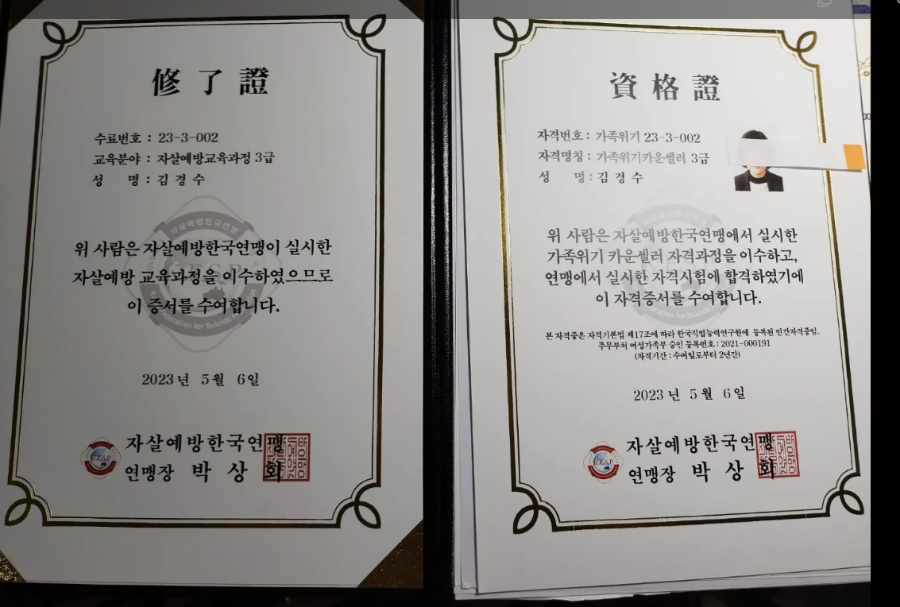 修了證
수료번호 : 23-3-002
교육분야 : 자살예방교육과정 3급
성 명 : 김경수
위 사람은 자살예방한국연맹이 실시한
자살예방 교육과정을 이수하였으므로
이 증서를 수여합니다.
2023년 5월 6일
자살예방한국연맹
연맹장 박상회
資格證
자격번호 : 가족위기 23-3-002
자격명칭 : 가족위기카운셀러 3급
성 명 : 김경수
위 사람은 자살예방한국연맹에서 실시한
가족위기 카운셀러 자격과정을 이수하고,
연맹에서 실시한 자격시험에 합격하였기에
이 자격증서를 수여합니다.
본 자격증은 자격기본법 제17조에 따라 한국직업능력연구원에 등록된 민간자격증임.
주무부처 여성가족부 승인 등록번호 : 2021-000191
(자격기간 : 수여일로부터 2년간)
2023년 5월 6일
자살예방한국연맹
연맹장 박상회